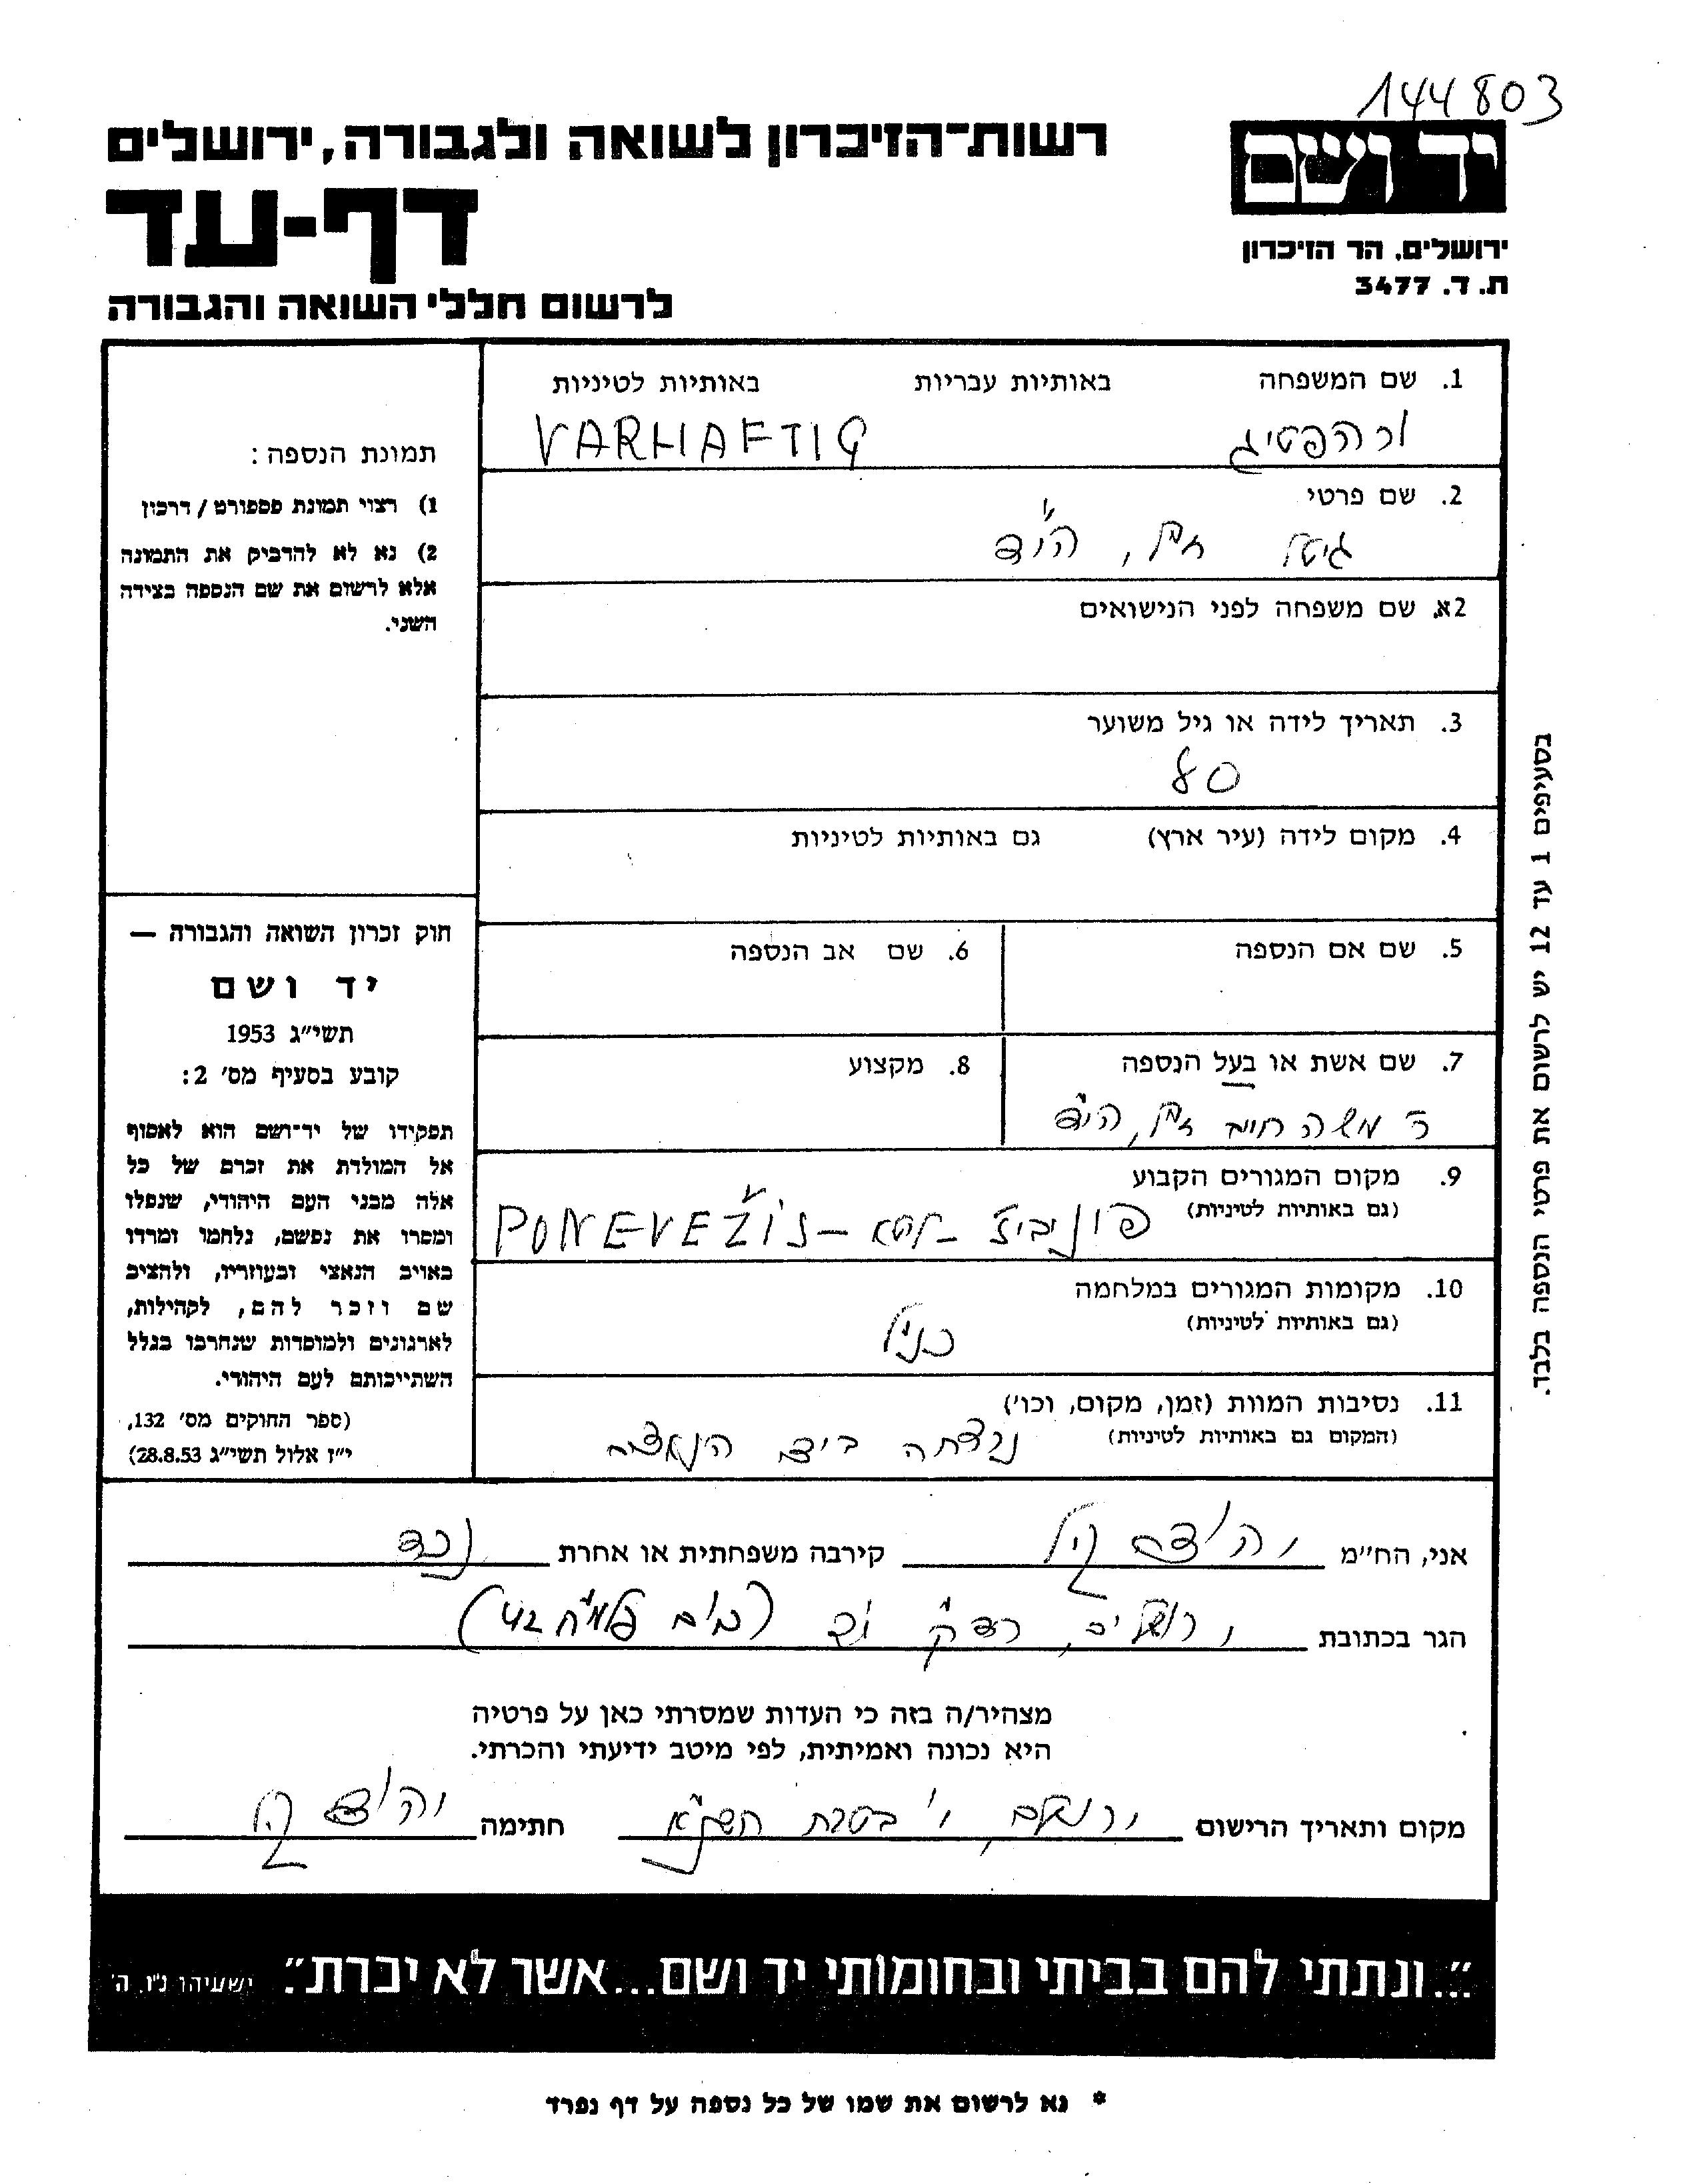 144803
יד ושם
ירושלים. הר הזיכרון
ת. ד. 3477
רשות־הזיכרון לשואה ולגבורה, ירושלים
דף-עד
לרשום חללי השואה והגבורה
1. שם המשפחה באותיות עבריות באותיות לטיניות
ורהפטיג VARHAFTIG
2. שם פרטי
גיטל הי"ד
2א. שם משפחה לפני הנישואים
3. תאריך לידה או גיל משוער
80
4. מקום לידה (עיר ארץ) גם באותיות לטיניות
5. שם אם הנספה 6. שם אב הנספה
7. שם אשת או בעל הנספה 8. מקצוע
ר' משה חיים הי"ד
9. מקום המגורים הקבוע
(גם באותיות לטיניות)
פוניביז' - ליטא - PONEVEŽIS
10. מקומות המגורים במלחמה
(גם באותיות לטיניות)
כנ"ל
11. נסיבות המוות (זמן, מקום, וכו')
(המקום גם באותיות לטיניות)
נרצחה ביד הנאצים
תמונת הנספה:
1) רצוי תמונת פספורט / דרכון
2) נא לא להדביק את התמונה
אלא לרשום את שם הנספה בצידה
השני.
חוק זכרון השואה והגבורה —
יד ושם
תשי״ג 1953
קובע בסעיף מס' 2:
תפקידו של יד־ושם הוא לאסוף
אל המולדת את זכרם של כל
אלה מבני העם היהודי, שנפלו
ומסרו את נפשם, נלחמו ומרדו
באויב הנאצי ובעוזריו, ולהציב
שם וזכר להם, לקהילות,
לארגונים ולמוסדות שנחרבו בגלל
השתייכותם לעם היהודי.
(ספר החוקים מס' 132,
י״ז אלול תשי״ג 28.8.53)
בסעיפים 1 עד 12 יש לרשום את פרטי הנספה בלבד.
אני, הח״מ קירבה משפחתית או אחרת נכד
הגר בכתובת ירושלים, רד"ק
מצהיר/ה בזה כי העדות שמסרתי כאן על פרטיה
היא נכונה ואמיתית, לפי מיטב ידיעתי והכרתי.
מקום ותאריך הרישום ירושלים, ו' בטבת חתימה
״...ונתתי להם בביתי ובחומותי יד ושם...אשר לא יכרת״. ישעיהו נ״ו, ה'
* נא לרשום את שמו של כל נספה על דף נפרד